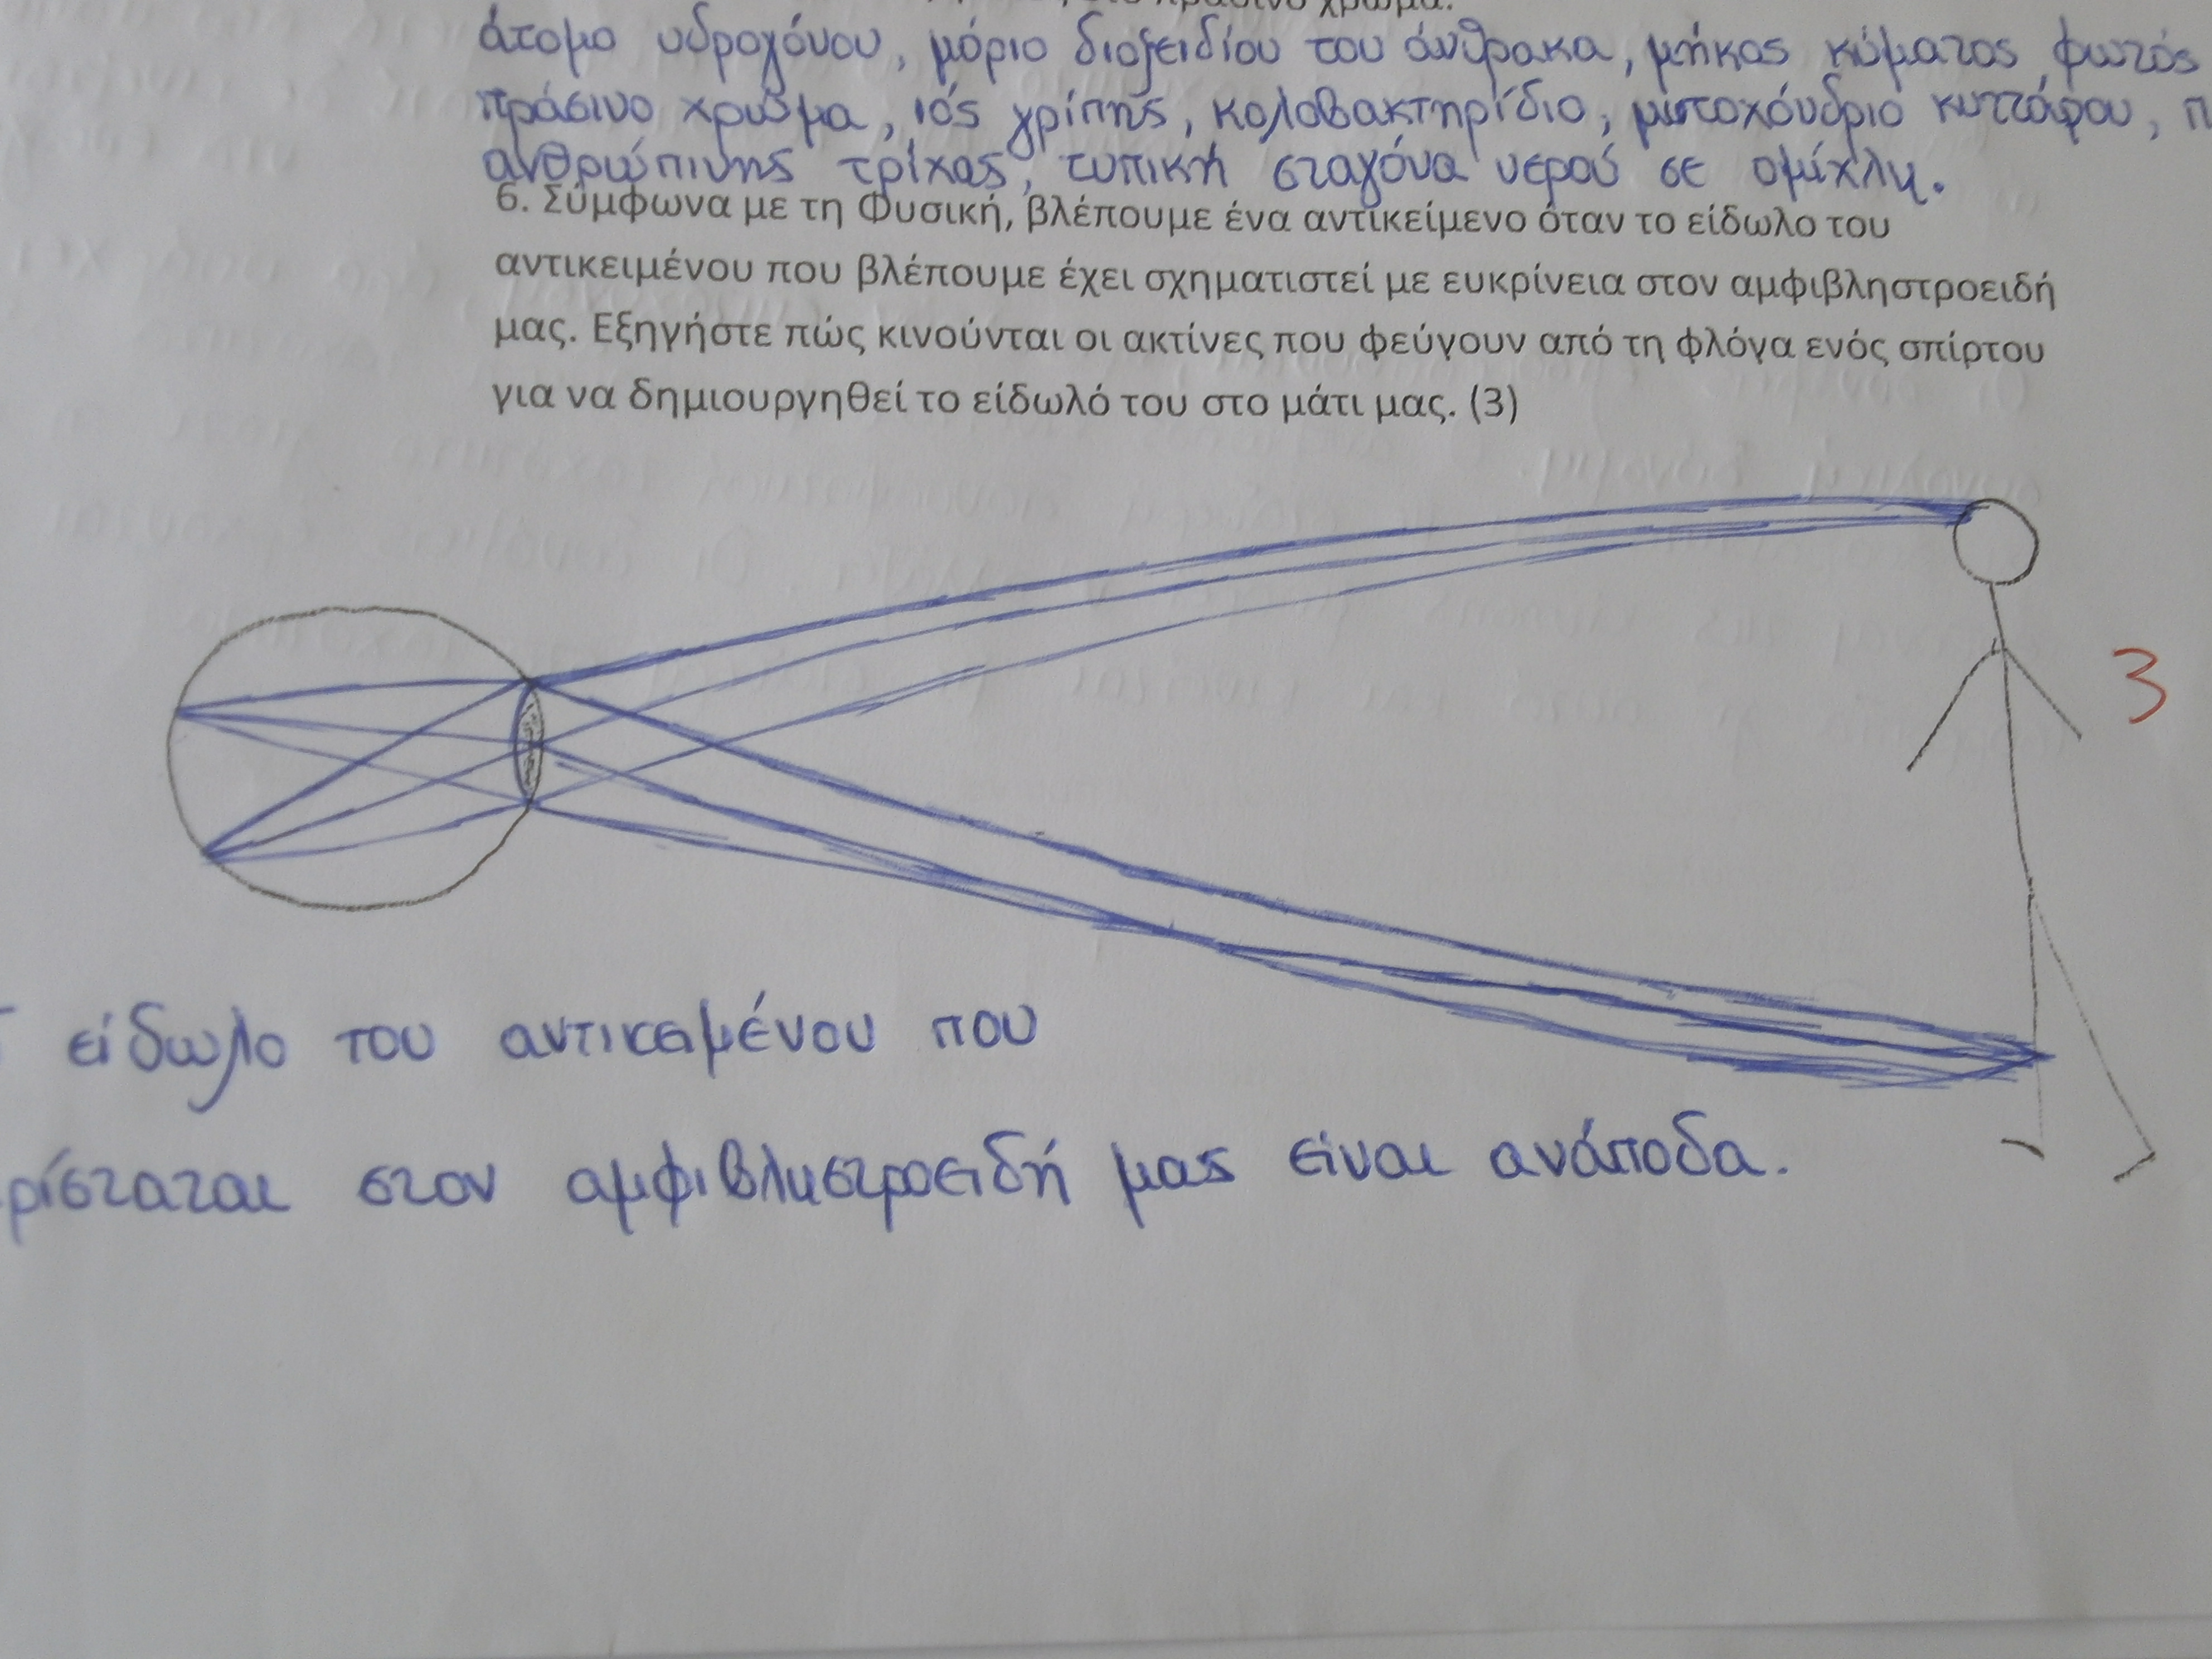 χρώμα.
άτομο υδρογόνου, μόριο διοξειδίου του άνθρακα, μήκος κύματος φωτός
πράσινο χρώμα, ιός γρίπης, κολοβακτηρίδιο, μιτοχόνδριο κυττάρου, π
ανθρώπινης τρίχας, τυπική σταγόνα νερού σε ομίχλη.
6. Σύμφωνα με τη Φυσική, βλέπουμε ένα αντικείμενο όταν το είδωλο του
αντικειμένου που βλέπουμε έχει σχηματιστεί με ευκρίνεια στον αμφιβληστροειδή
μας. Εξηγήστε πώς κινούνται οι ακτίνες που φεύγουν από τη φλόγα ενός σπίρτου
για να δημιουργηθεί το είδωλό του στο μάτι μας. (3)
3
είδωλο του αντικειμένου που
ρίσταται στον αμφιβληστροειδή μας είναι ανάποδα.